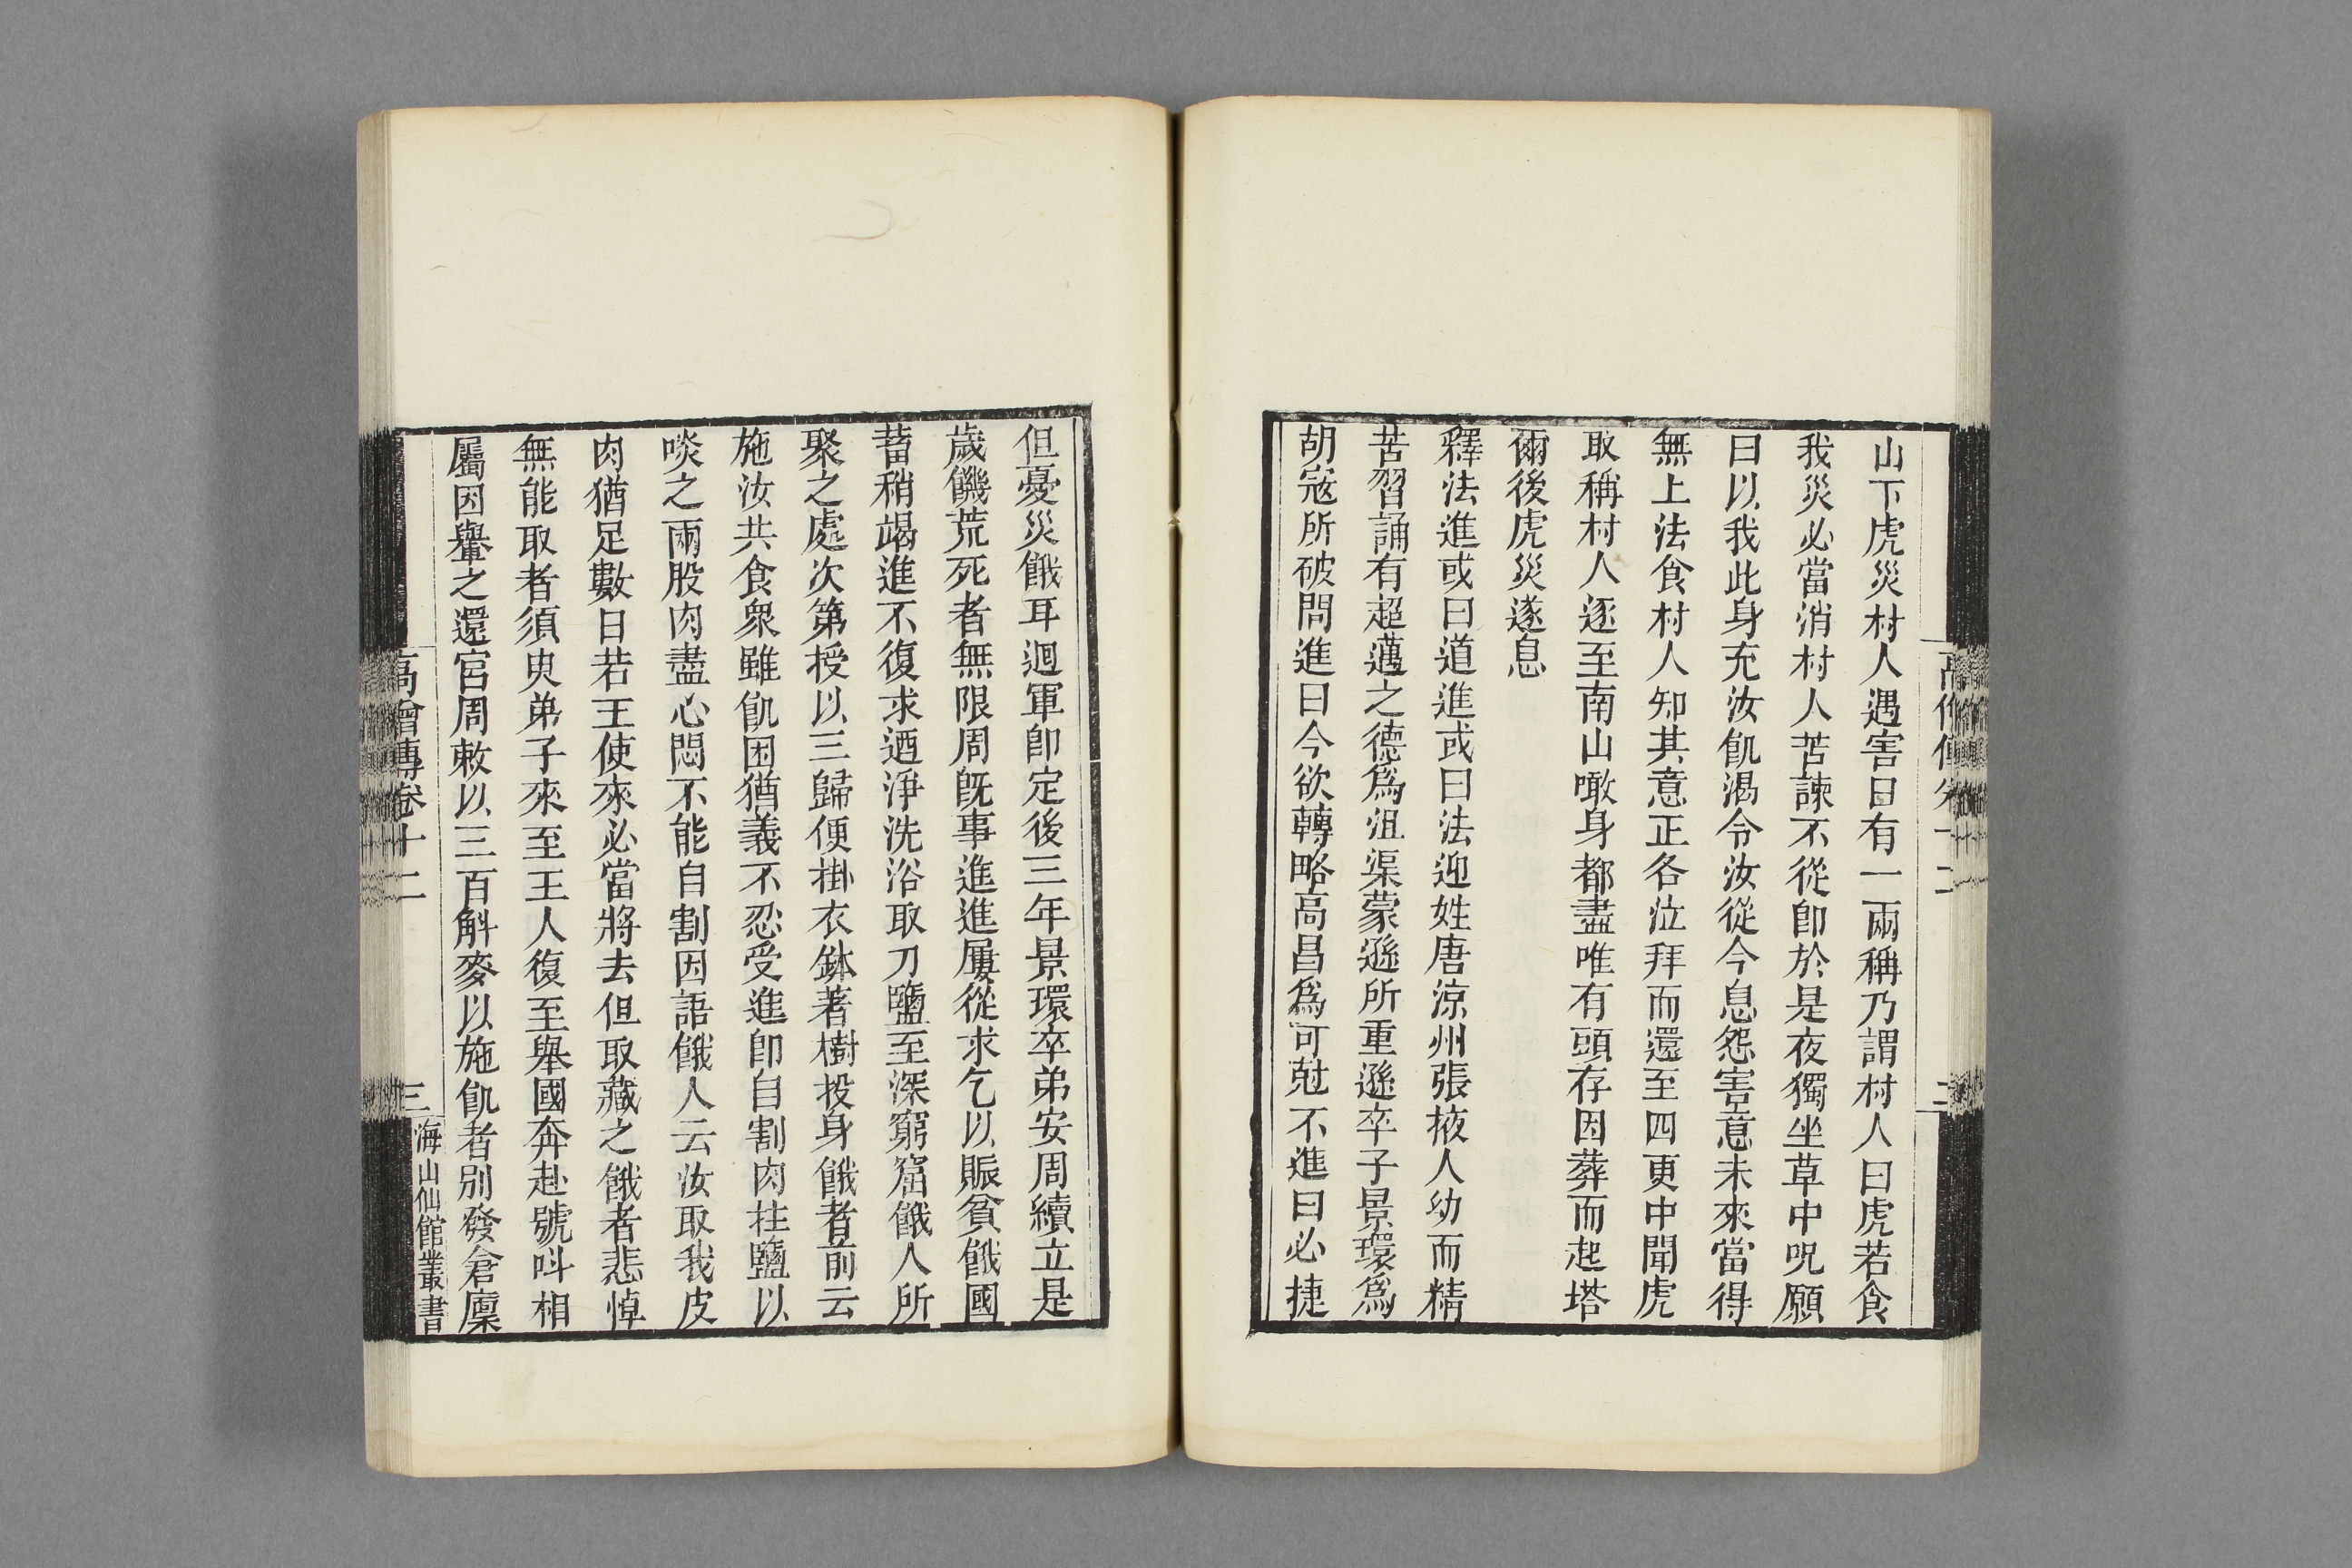 山下虎災村人遇害日有一兩稱乃謂村人曰虎若食
我災必當消村人苦諫不從卽於是夜獨坐草中呪願
曰以我此身充汝飢渴令汝從今息怨害意未來當得
無上法食村人知其意正各泣拜而還至四更中聞虎
取稱村人逐至南山噉身都盡唯有頭存因葬而起塔
爾後虎災遂息
釋法進或曰道進或曰法迎姓唐涼州張掖人幼而精
苦習誦有超邁之德爲沮渠蒙遜所重遜卒子景環爲
胡寇所破問進曰今欲轉略高昌爲可尅不進曰必捷
但憂災餓耳迴軍卽定後三年景環卒弟安周續立是
歲饑荒死者無限周旣事進進屢從求乞以賑貧餓國
蓄稍竭進不復求迺淨洗浴取刀鹽至深窮窟餓人所
聚之處次第授以三歸便掛衣鉢著樹投身餓者前云
施汝共食衆雖飢困猶義不忍受進卽自割肉柱鹽以
啖之兩股肉盡心悶不能自割因語餓人云汝取我皮
肉猶足數日若王使來必當將去但取藏之餓者悲悼
無能取者須臾弟子來至王人復至舉國奔赴號呌相
屬因轝之還宮周敕以三百斛麥以施飢者別發倉廩
高僧傳卷十二
三
海山仙館叢書